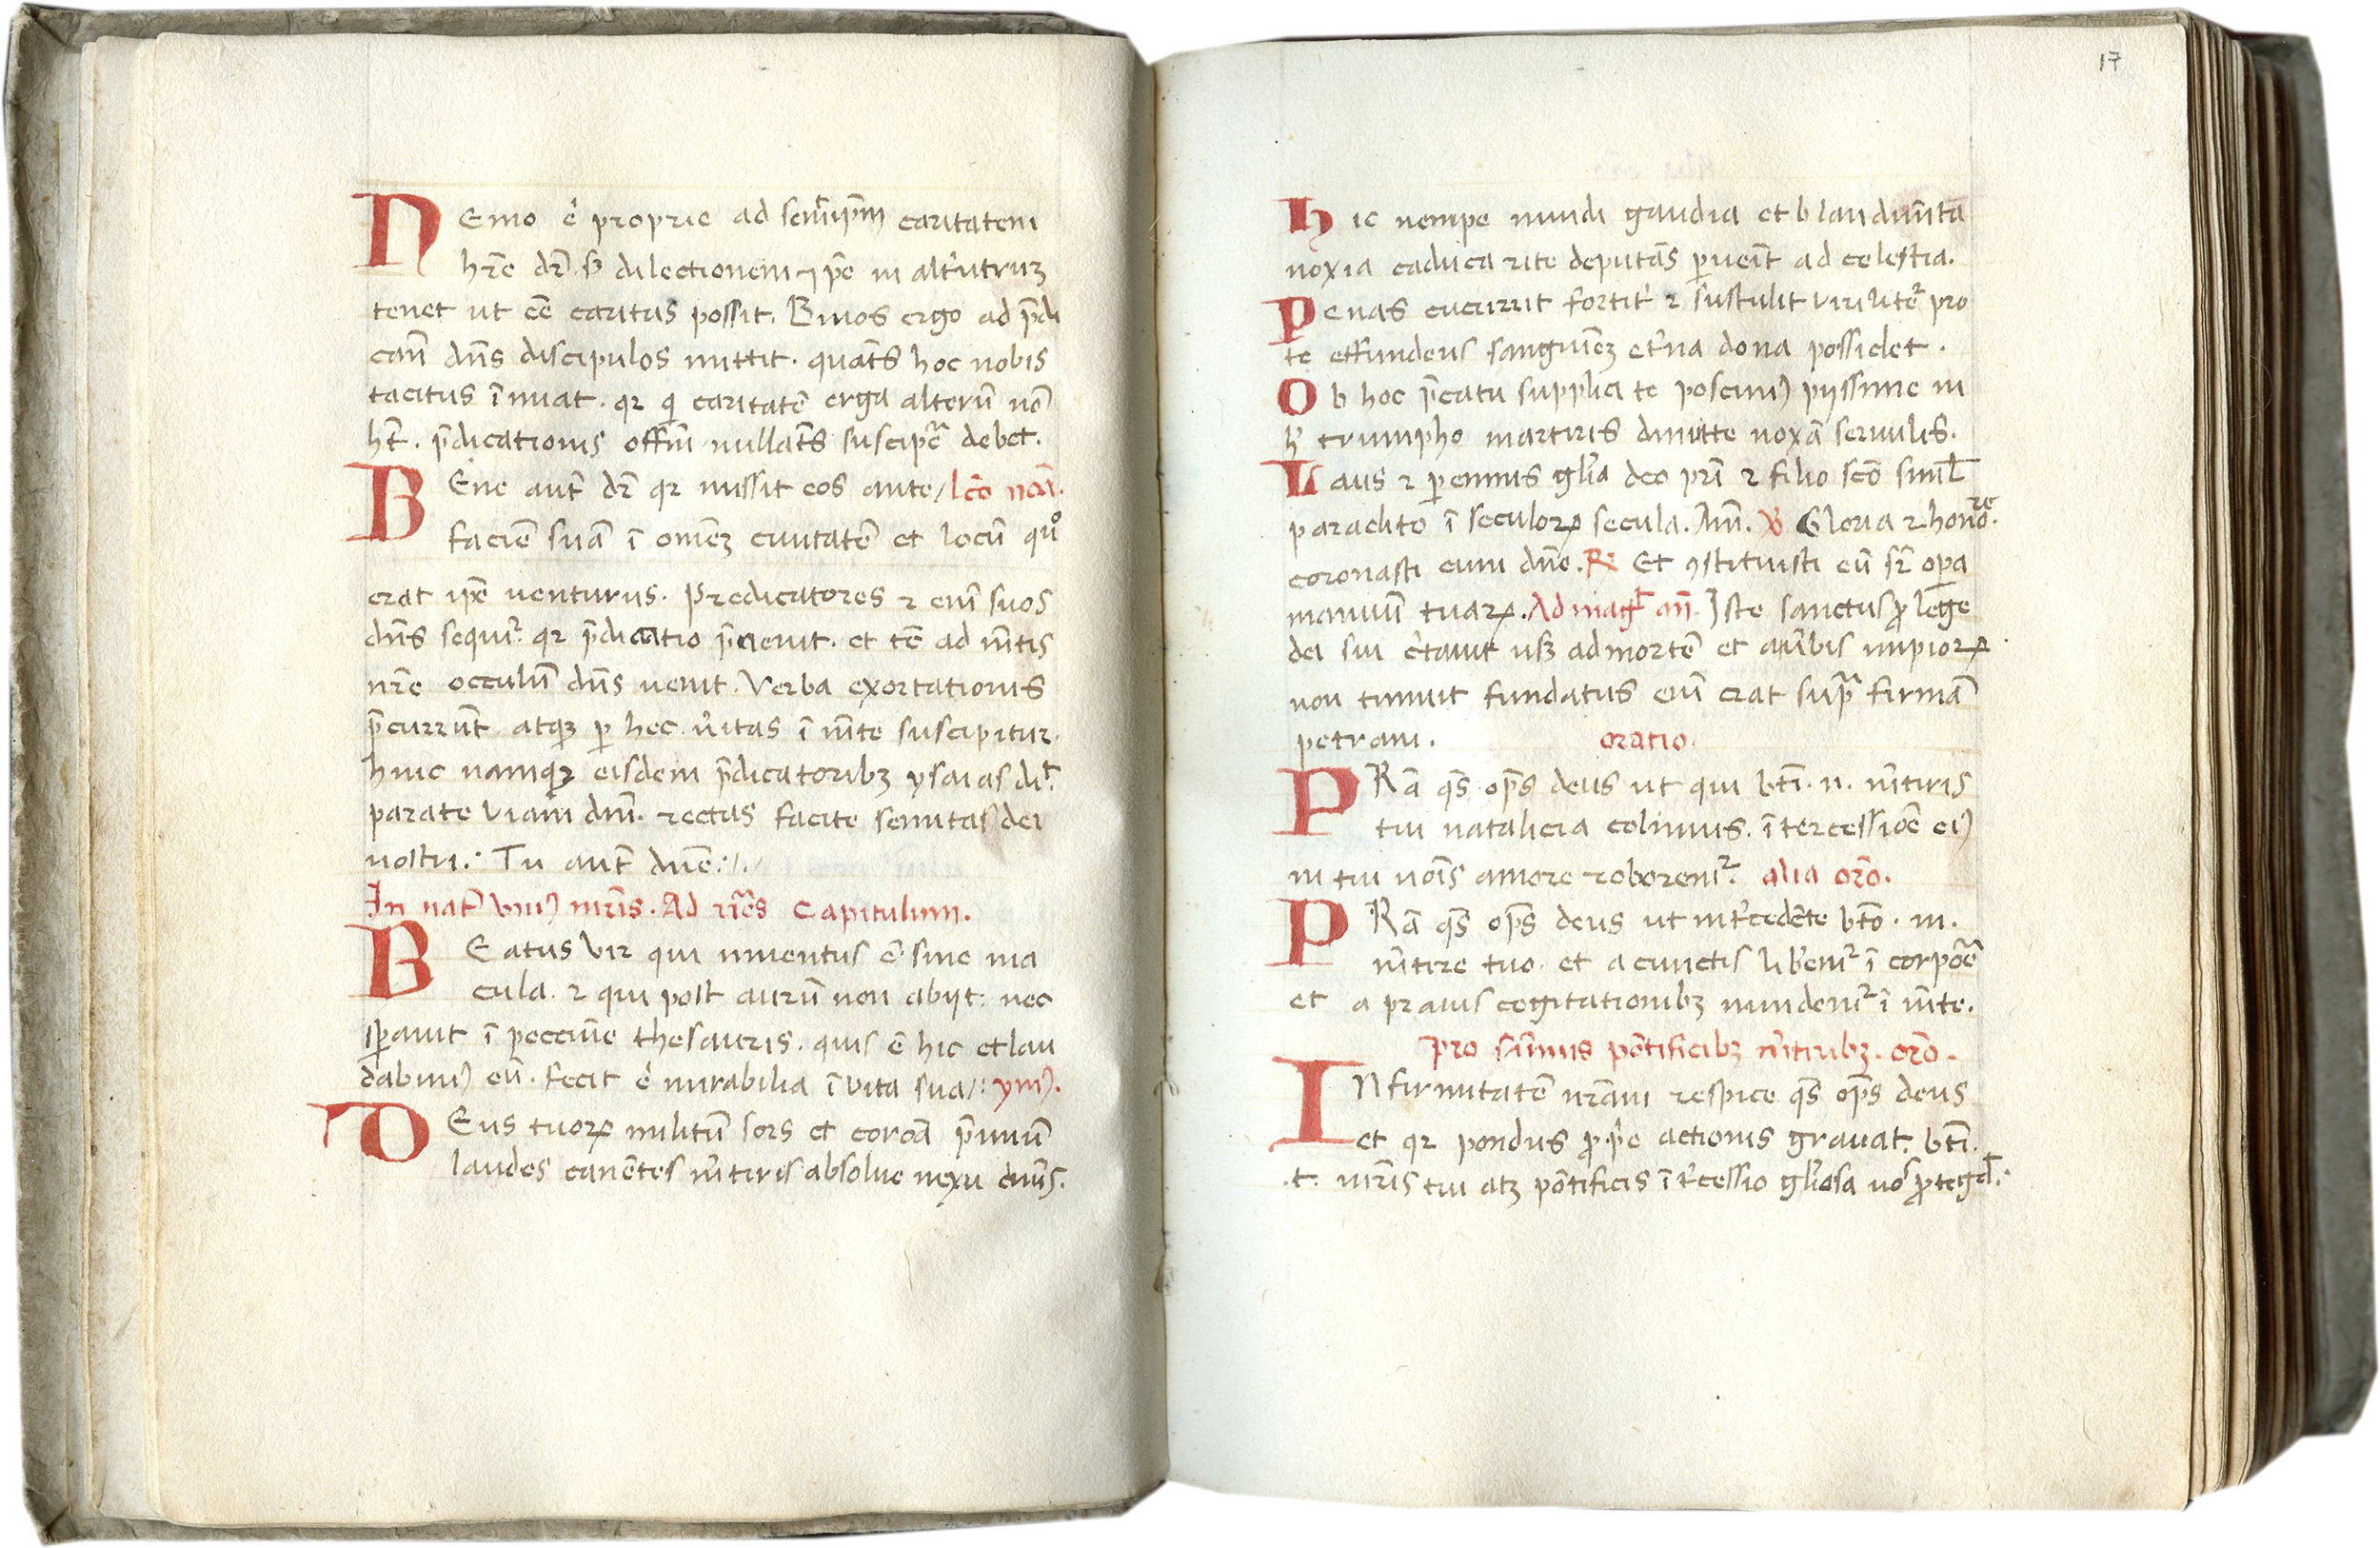 NEmo ē proprie ad semīip̄m caritatem
hr̄e dr̄. sȝ dilectionem ⁊ ip̄e in alt'utruȝ
tenet ut ēē caritas possit. Binos ergo ad p̄di
can̄ dn̄s discipulos mittit. quat̄s hoc nobis
tacitus īnuat. qr qi caritatē erga alterū nō
ht̄. p̄dicationis offiū nullat̄s suscipe debet.
BEne aut̄ dr̄ qr missit eos ante / lc̄o nōa.
faciē suā ī omēȝ ciuitatē et locū quo
erat ip̄e uenturus. Predicatores ⁊ enī suos
dn̄s sequit᷑. qr p̄dicatio p̄uenit. et tc̄ ad m̄tis
nr̄e occulum̄ dn̄s uenit. Verba exortationis
p̄currūt atqȝ p hec u'itas ī m̄te suscipitur.
hinc namqȝ eisdem p̄dicatoribȝ ysaias di.t
parate viam dnī. rectas facite semitas dei
nostri. Tu aut̄ dn̄e.
In nat̄ vniꝯ mr̄is. Ad ur̄as Capitulum.
BEatus vir qui inuentus ē sine ma
cula. ⁊ qui post aurū non abijt: nec
sperauit ī peccunie thesauris. quis ē hic et lau
dabimꝯ eū. fecit ē mirabilia ī vita sua: ymꝯ.
DEus tuoꝝ militū sors et coroā p̄miū
laudes canētes m̄tiris absolue nexu c'mīs.
17
hic nempe mundi gaudia et blandim̄ta
noxia caduca rite deputās puenīt ad celestia.
Penas cucurrit fortit' ⁊ sustulit virilit᷑ pro
te effundens sanguinēȝ et'na dona possidet.
Ob hoc p̄catu supplici te poscimꝯ pijssime in
h' triumpho martiris dimitte noxā seruulis.
Laus ⁊ perennis gl'ia deo pr̄i ⁊ filio scō simł
paraclito ī seculoꝝ secula. Am̄. ℣ Gloria ⁊ honore.
coronasti eum dn̄e. ℟ Et ꝯstituisti eū sr̄ opa
manuū tuaꝝ. Ad magt an̄. Iste sanctus ꝓ lege
dei sui c'tauit usȝ ad mortē et a u'bis impioꝝ
non timuit fundatus enī erat supra firmā
petram. oratio.
PRā qs̄ op̄s deus ut qui btī. n. m̄tiris
tui natalicia colimus. ītercessiōe eiꝯ
in tui noīs amore roborem᷑. alia orō.
PRā qs̄ op̄s deus ut int'cedēte btō. n.
m̄tire tuo. et a cunctis lib'em᷑ ī corpōe
et a prauis cogitationibȝ mundem᷑ ī m̄te.
pro sūmis pōtificibȝ m̄tiribȝ. orō.
INfirmitatē nr̄am respice qs̄ op̄s deus
et qr pondus ꝓp̄ie actionis grauat. btī.
.t. mr̄is tui atȝ pōtificis īt'cessio gl'iosa nos ꝓtegat.